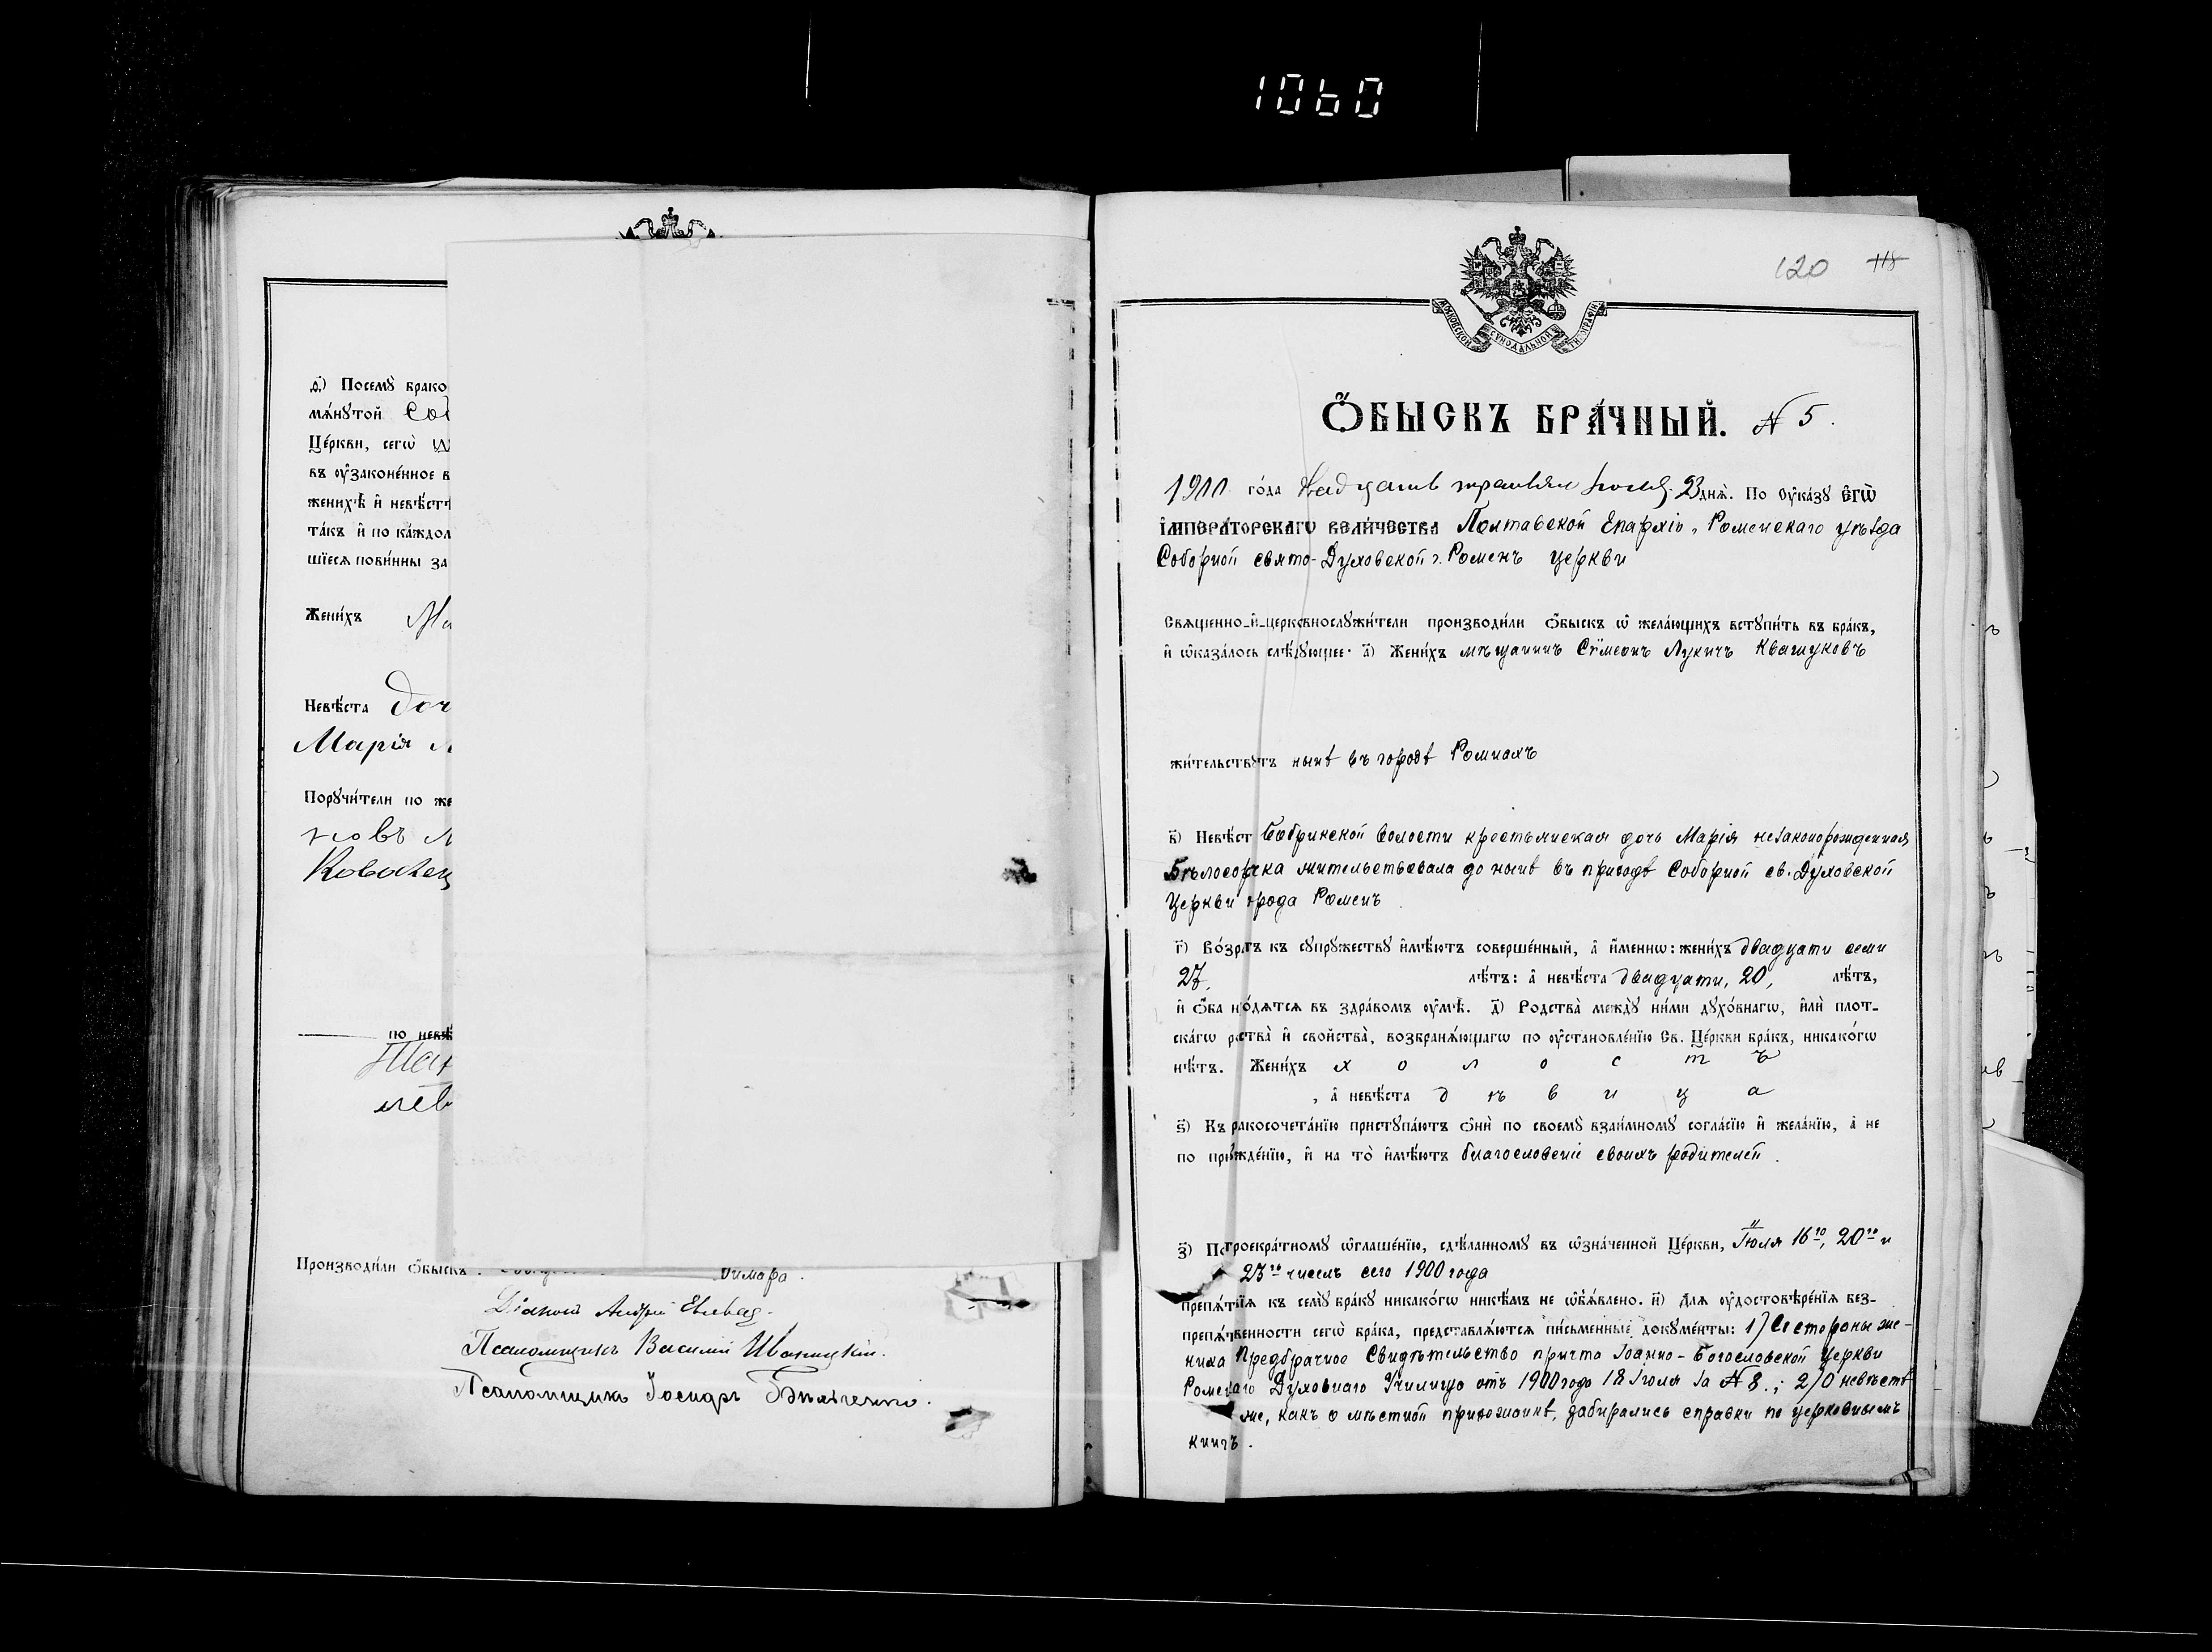 1060
д҃) Посемꙋ̀ брако
мѧ́нꙋтой Соб
Це́ркви, сегѡ̀
въ оу҆законе́нное в
женихѣ̀ и҆ невѣ́стѣ
та́къ и҆ по ка́ждом
шїесѧ пови́нны за
Жени́хъ Ма
Невѣ́ста Доч
Марія
Порꙋчи́тели по же
новъ
по невѣ́
Производи́ли ѻ҆́быскъ:
Діаконъ Андрей
Псаломщикъ Василій Иваницкій.
Псаломщикъ Іосифъ
120 118
МОСКОВСКОЙ СѴНОДАЛЬНОЙ ТИПОГРАФІИ
Ѻ҆БЫСКЪ БРА́ЧНЫЙ. № 5.
1900 го́да Двадцать третьяго Іюля 23 днѧ̀. По оу҆ка́зꙋ Є҆гѡ̀
І҆мпера́торскагѡ вели́чества Полтавской Епархіи, Роменскаго уѣзда
Соборной свято-Духовской г. Роменъ церкви
Свѧще́нно-и҆-церковнослꙋжи́тели производи́ли ѻ҆́быскъ ѡ҆ жела́ющихъ встꙋпи́ть въ бра́къ,
и҆ ѡ҆каза́лось слѣ́дꙋющее: а҃) Жени́хъ мѣщанинъ Сѷмеонъ Лукичъ Квашуковъ
жи́тельствꙋтъ нынѣ въ городѣ Ромнахъ
в҃) Невѣ́ст Бобрикской волости крестьянская дочь Марія незаконорожденная
Бѣлосорчка жительствовала до нынѣ въ приходѣ Соборной св. Духовской
Церкви города Роменъ
г҃) Во́зрастъ къ сꙋпрꙋ́жествꙋ и҆мѣ́ютъ соверше́нный, а҆ и҆́меннѡ: жени́хъ двадцати семи
27, лѣ́тъ: а҆ невѣ́ста двадцати, 20, лѣ́тъ,
и҆ ѻ҆́ба нахо́дѧтсѧ въ здра́вомъ оу҆мѣ̀. д҃) Родства̀ междꙋ̀ ни́ми дꙋхо́внагѡ, и҆лѝ плот-
ска́гѡ родства̀ и҆ свойства̀, возбранѧ́ющагѡ по оу҆становле́нїю Св. Це́ркви бра́къ, никако́гѡ
нѣ́тъ. Жени́хъ холостъ
, а҆ невѣ́ста дѣвица
ѕ҃) Къ бракосочета́нїю пристꙋпа́ютъ ѻ҆нѝ по своемꙋ̀ взаи́мномꙋ согла́сїю и҆ жела́нїю, а҆ не
по принꙋжде́нїю, и҆ на то̀ и҆мѣ́ютъ благословеніе своихъ родителей.
з҃) По троекра́тномꙋ ѡ҆глаше́нїю, сдѣ́ланномꙋ въ ѡ҆зна́ченной Це́ркви, Іюля 16го, 20го и
23го числъ сего 1900 года
препѧ́тїѧ къ семꙋ̀ бра́кꙋ никако́гѡ никѣ́мъ не ѡ҆б̾ѧ́влено. и҃) Длѧ оу҆достовѣ́ренїѧ без-
препѧ́тственности сегѡ̀ бра́ка, представлѧ́ютсѧ пи́сьменные докꙋме́нты: 1) Со стороны же-
ниха Предбрачное Свидѣтельство причта Іоанно-Богословской церкви
Роменскаго Духовнаго Училища отъ 1900 года 18 Іюля за № 8.; 2) О невѣстѣ
же, какъ о мѣстной прихожанкѣ, забирались справки по церковнымъ
книгъ.